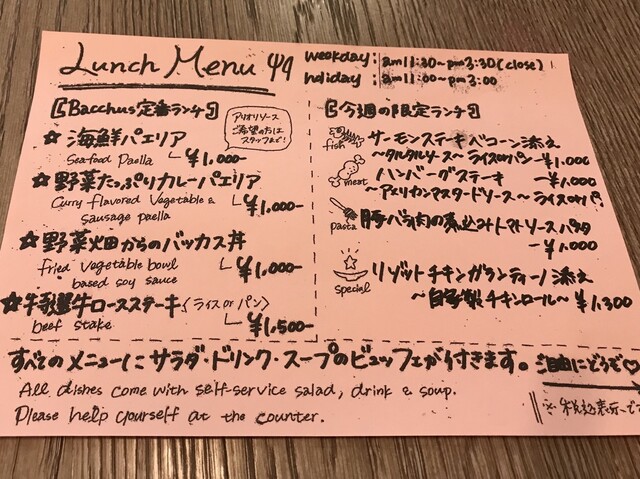 Lunch Menu
weekday : am 11:30~pm 3:30 (close)
holiday : am 11:00~pm 3:00
【Bacchus定番ランチ】
アリオリソース
ご希望の方は
スタッフまで!
☆ 海鮮パエリア
Seafood Paella ¥1,000-
☆ 野菜たっぷりカレーパエリア
Curry flavored Vegetable &
sausage paella ¥1,000-
☆ 野菜畑からのバッカス丼
Fried vegetable bowl
based soy sauce ¥1,000-
☆ 牛ロースステーキ〈ライス or パン〉
beef stake ¥1,500-
【今週の限定ランチ】
fish サーモンステーキベーコン添え
~タルタルソース~ライスorパン ¥1,000
meat ハンバーグステーキ ¥1,000
~アメリカンマスタードソース~ライスorパン
pasta 豚バラ肉の煮込みトマトソースパスタ
¥1,000
special リゾットチキンガランティーノ添え
~自家製チキンロール~ ¥1,300
すべてのメニューにサラダ・ドリンク・スープのビュッフェが付きます。ご自由にどうぞ♡
All dishes come with self-service salad, drink & soup.
Please help yourself at the counter.
※税込表示です